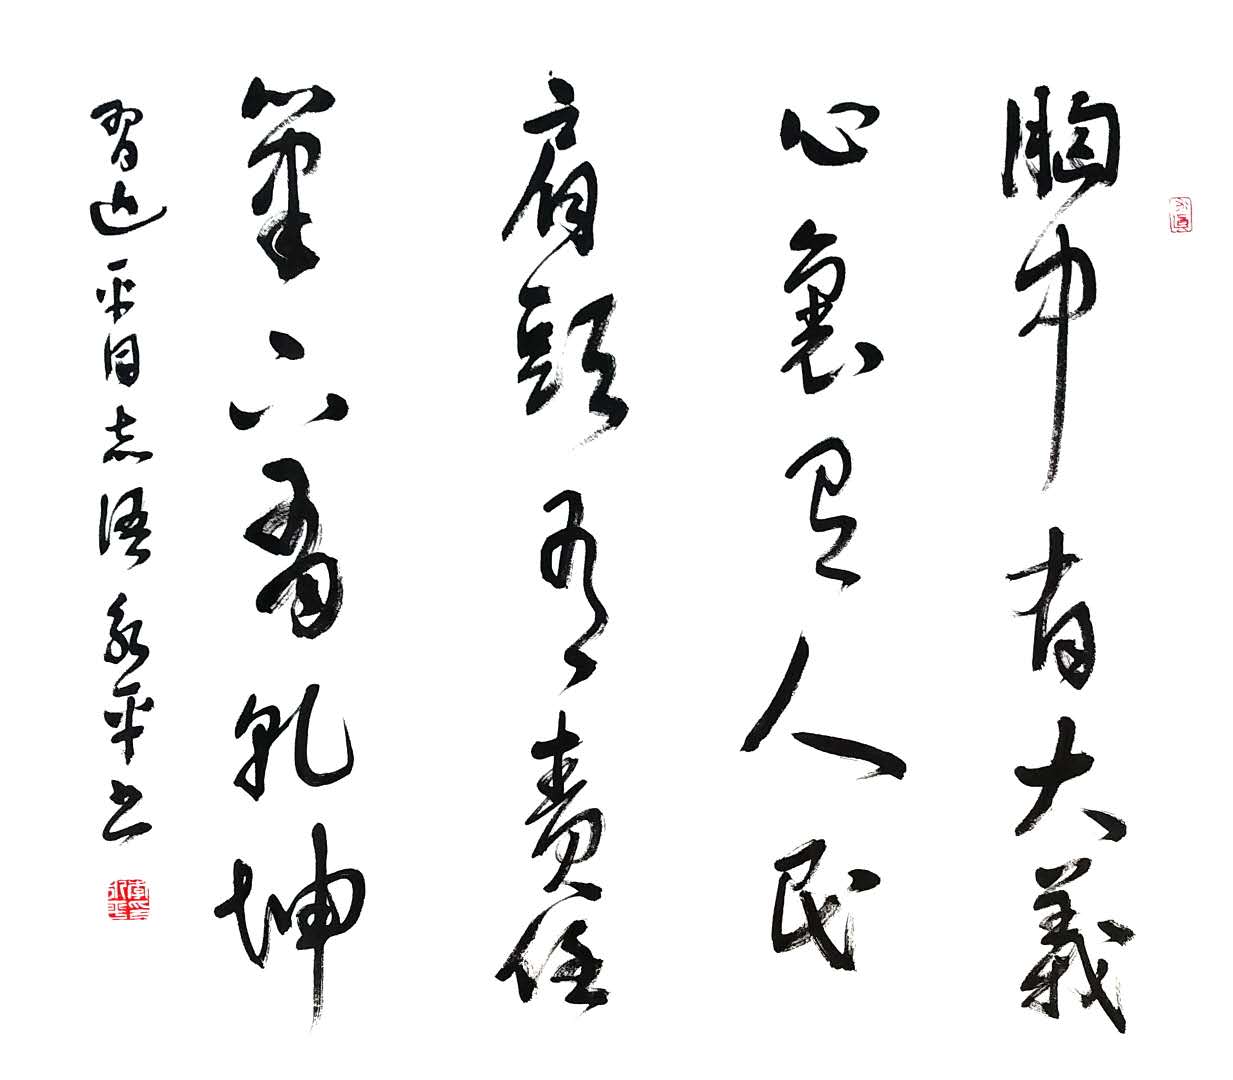 胸中有大義
心裏有人民
肩頭有責任
筆下有乾坤
習近平同志語 永平書